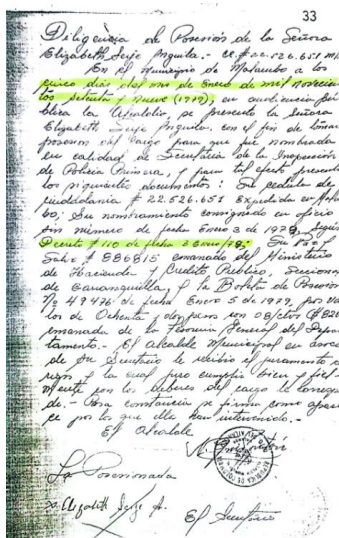 33
Diligencia de Posesión de la Señora
Elizabeth Serje Anguila.- CC.#22.526.651
En el Municipio de Malambo a los
cinco días del mes de Enero de mil novecien
tos setenta y nueve (1979), en audiencia pú
blica la Alcaldía, se presentó la Señora
Elizabeth Serje Anguila, con el fin de tomar
posesión del cargo para que fue nombrada
en calidad de Secretaria de la Inspección
de Policía Primera, y para tal efecto presentó
los siguientes documentos: Su cedula de
ciudadanía # 22.526.651 Expedida en
bo; Su nombramiento consignado en oficio
sin número de fecha Enero 3 de 1979, según
Decreto # 110 de fecha 3 Enero/79; Su Paz y
Salvo # 886815 emanado del Ministerio
de Hacienda y Credito Publico, Seccional
de Barranquilla, y la Boleta de Posesión
Nº 49476 de fecha Enero 5 de 1979, por va
lor de Ochenta y dos pesos con 08/ctvos
emanada de la Tesorería General del Depar
tamento.- El alcalde Municipal en asocio
de su Secretario le recibió el juramento de
rigor y la cual juro cumplir bien y fiel-
mente con los deberes del cargo
de.- Para constancia se firma como apare
ce por los que ella han intervenido.-
El Alcalde
La Posesionada
Elizabeth Serje A.
El Secretario